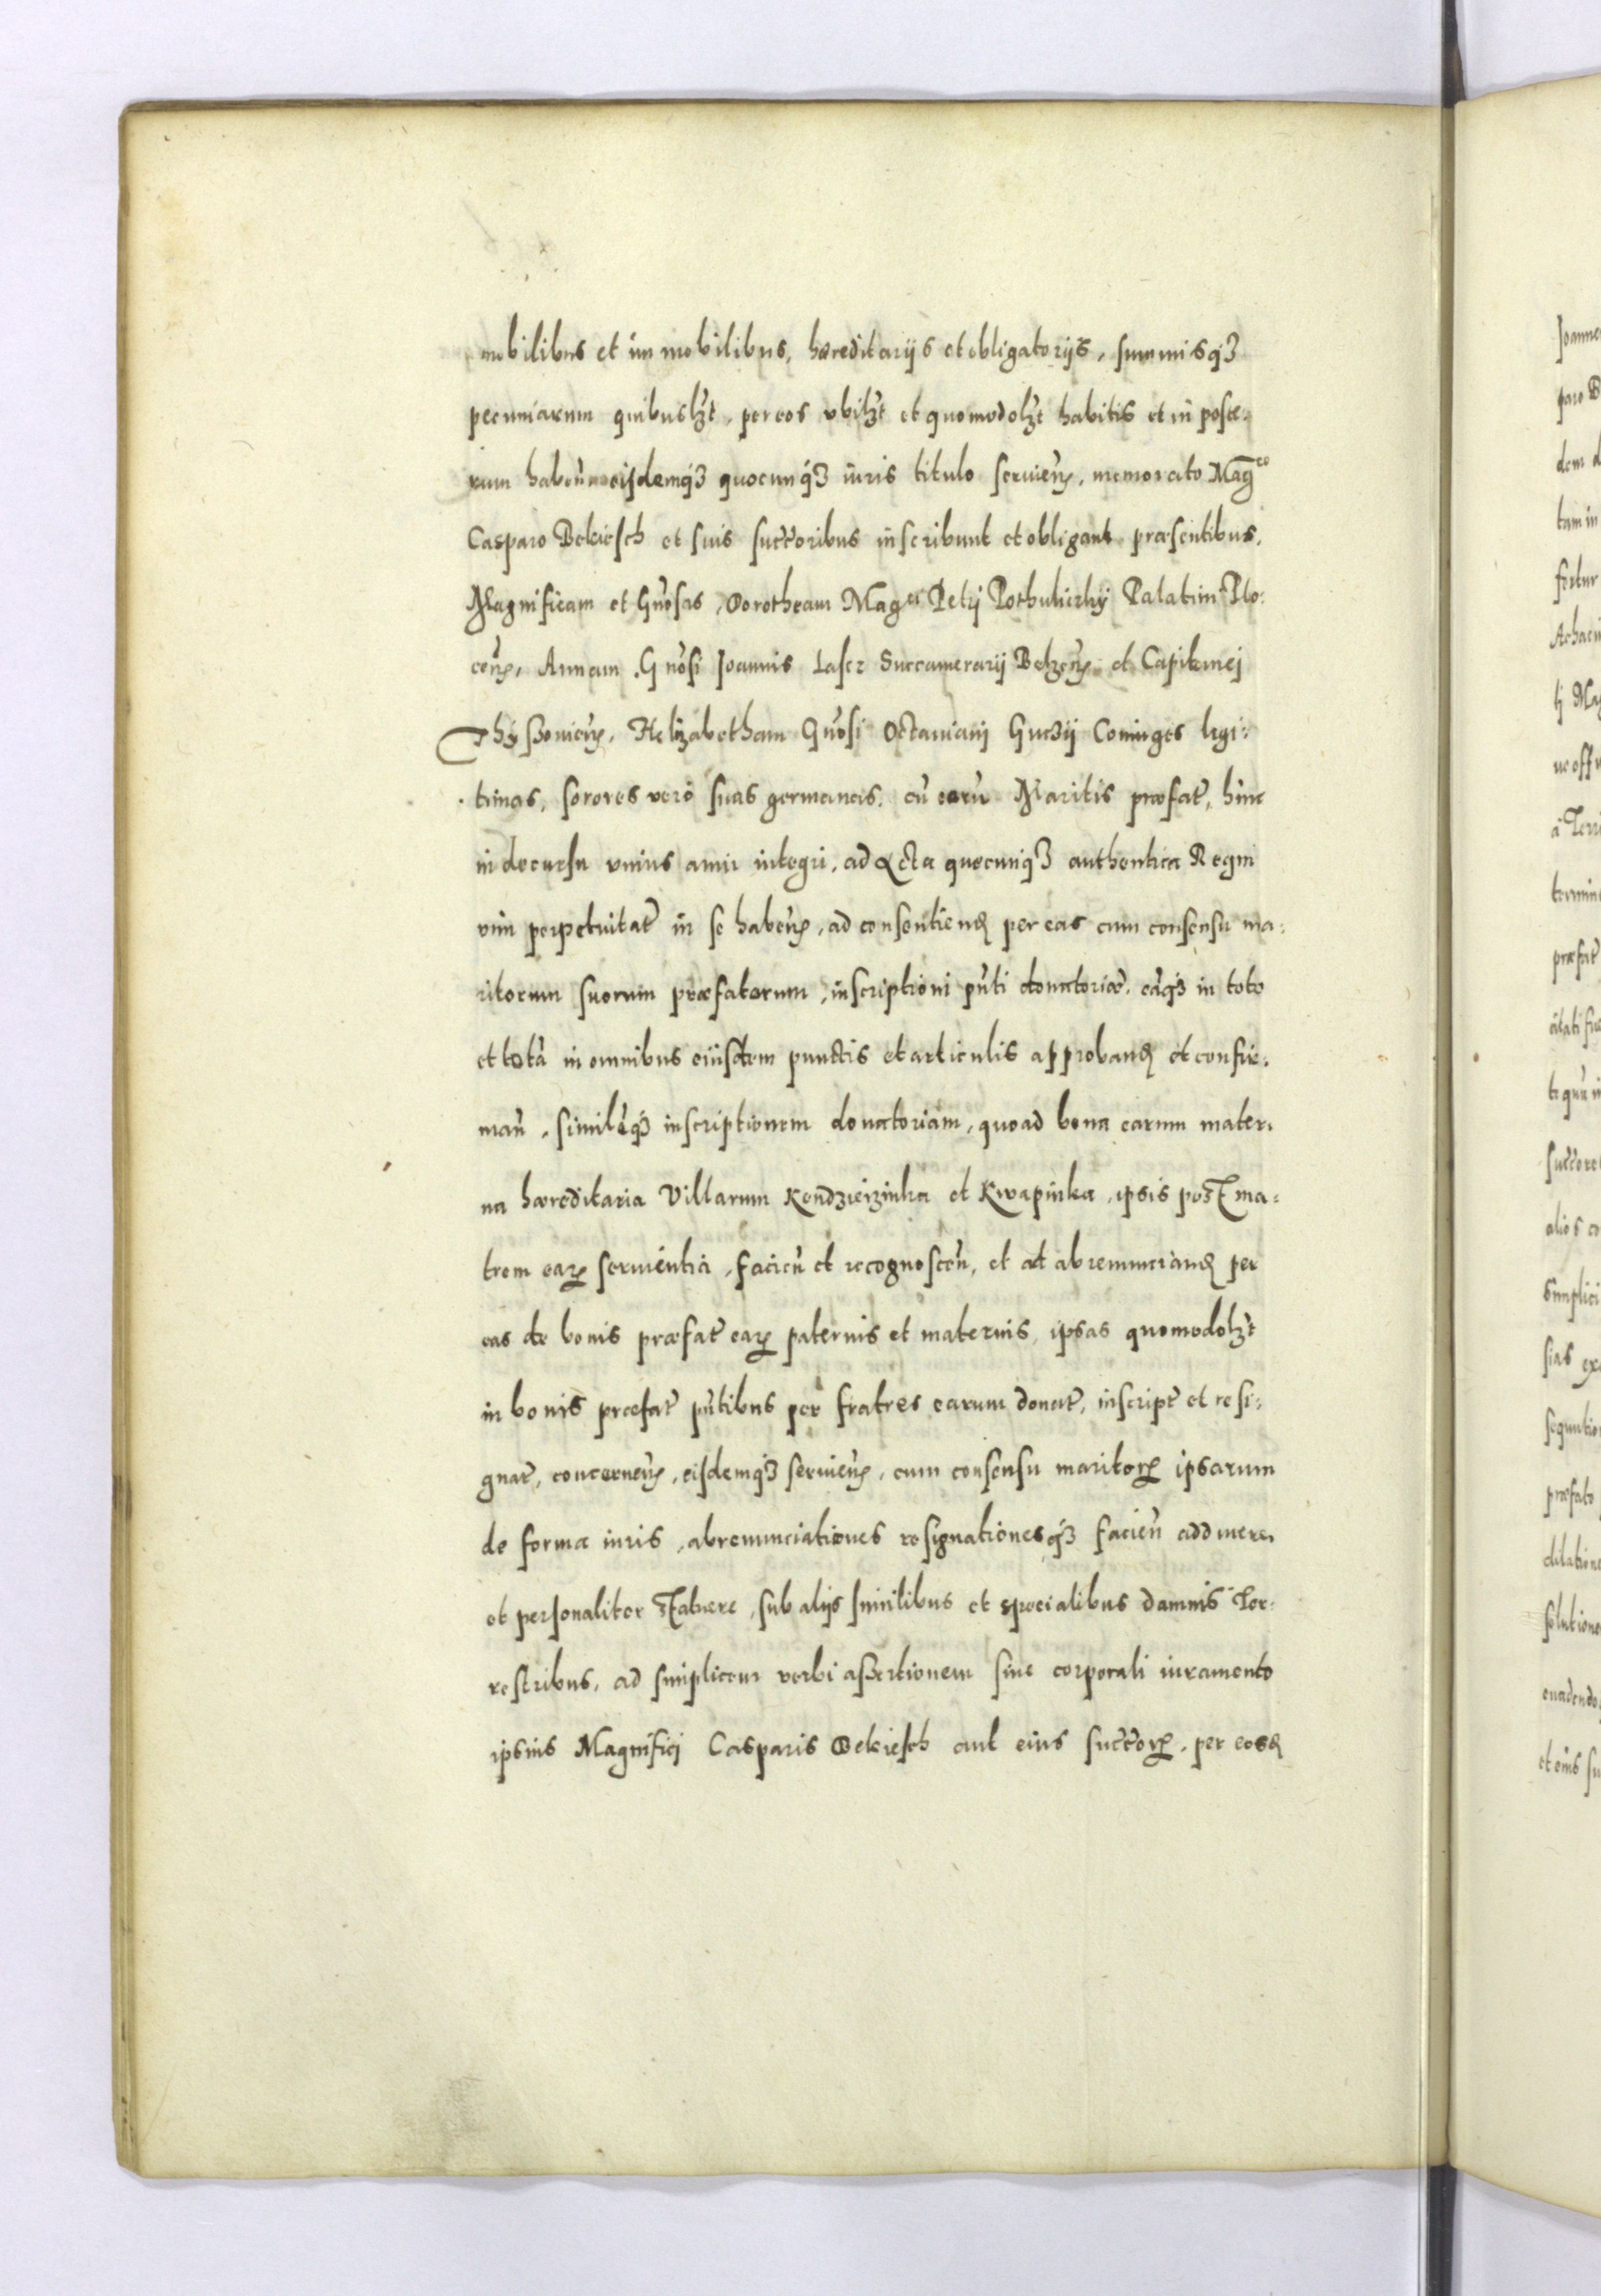 mobilibus et im mobilibus, hæreditarijs et obligatorijs, summisq3
pecuniarum quibuslzt, per eos vbilzt et quomodolzt habitis et in poste:
rum haben̄ eisdemq3 quocunq3 iuris titulo servien̄, memorato Mag̅co
Casparo Bekiesch et suis succ̄oribus inscribunt et obligant præsentibus.
Magnificam et Gn̄osas, Dorotheam Mag̅ci Petrj Pothuliczky Palatini Plo:
cen̄, Annam Gn̄osi Joannis Lasez Succamerarij Belzen̄ et Capitanej
Thyssouien̄, Helizabetham Gn̄osi Octauianj Guczij Cominges legi:
timas, sorores verò suas germanas, cū earū Maritis præfat̄, hinc
in decursu vnius anni integri, ad Acta quæcunq3 authentica Regni
vim perpetuitat̄ in se haben̄, ad consentiend̄ per eas cum consensu ma:
ritorum suorum præfatorum, inscriptioni pn̄ti donatoriæ, eāq3 in toto
et totā in omnibus eiusdem punctis et articulis approband̄ et confir:
man̄, similēq3 inscriptionem donatoriam, quoad bona earum mater:
na hæreditaria Villarum Kendzieizinka et Kwapinka, ipsis post ma:
trem ear̄ servientia, facien̄ et recognoscen̄, et ad abrenunciand̄ per
eas de bonis præfat̄ ear̄ paternis et maternis, ipsas quomodolzt
in bonis præfat̄ pn̄tibus per fratres earum donat̄, inscript̄ et resi:
gnat̄, concernen̄, eisdemq3 servien̄, cum consensu maritor̄ ipsarum
de forma iuris, abrenunciationes resignationesq3 facien̄ adducere
et personaliter statuere, sub alijs similibus et specialibus damnis Ter:
restribus, ad simplicem verbi assertionem sine corporali iuramento
ipsius Magnifici Casparis Bekiesch aut eius succ̄or̄, per eosd̄